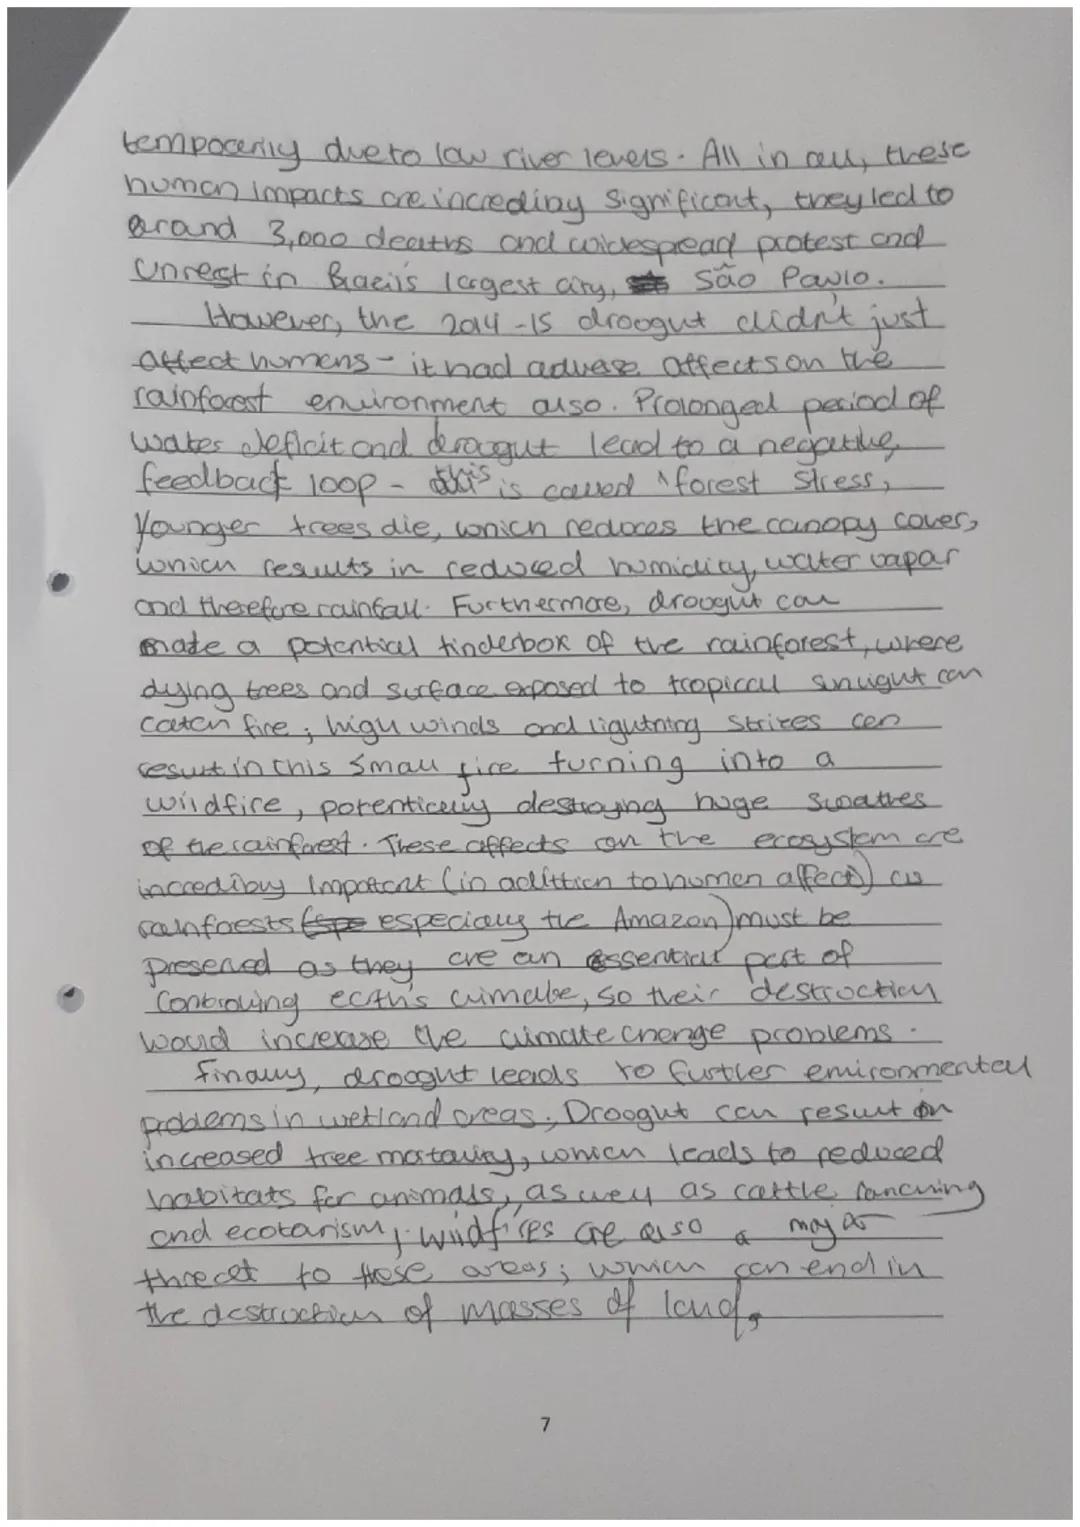 temporerily due to low river levels. All in all, these
human impacts are incrediby significant, they led to
around 3,000 deaths and widespread protest and
unrest in Brazil's largest city, São Paulo.
However, the 2014-15 droogut didn't just
affect humans - it had advese affects on the
rainforest environment also. Prolonged period of
water deficit and droogut lead to a negative
feedback loop - this is called ^ forest stress,
Younger trees die, which reduces the canopy cover,
which results in reduced humidity, water vapar
and therefore rainfall. Furthermore, droogut can
make a potential tinderbox of the rainforest, where
dying trees and surface exposed to tropical sunlight can
catch fire; high winds and lightning strikes can
result in this small fire turning into a
wildfire, potentically destroying huge swathes
of the rainforest. These affects on the ecosystem are
incredibly impotant (in addittion to human affects) as
rainforests (especially the Amazon) must be
preserved as they are an essential part of
Controlling earth's climate, so their destruction
would increase the climate change problems.
Finally, drooght leads to further enironmental
problems in wetland areas. Droogut can result in
increased tree mortality, which leads to reduced
habitats for animals, as well as cattle ranching
and ecotarism, wildfires are also a major
threat to these areas; which can end in
the destruction of masses of land.
7